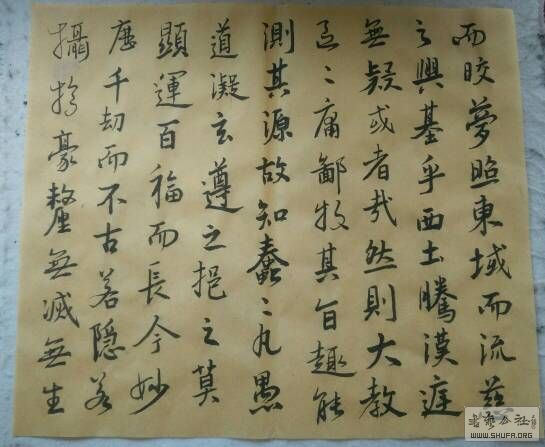 而晈夢照東域而流慈
之興基乎西土騰漢庭
無疑或者哉然則大教
區〻庸鄙投其旨趣能
測其源故知蠢〻凡愚
道凝玄遵之挹之莫
顯運百福而長今妙
歷千劫而不古若隱若
攝扵豪釐無滅無生
WWW.SHUFA.ORG